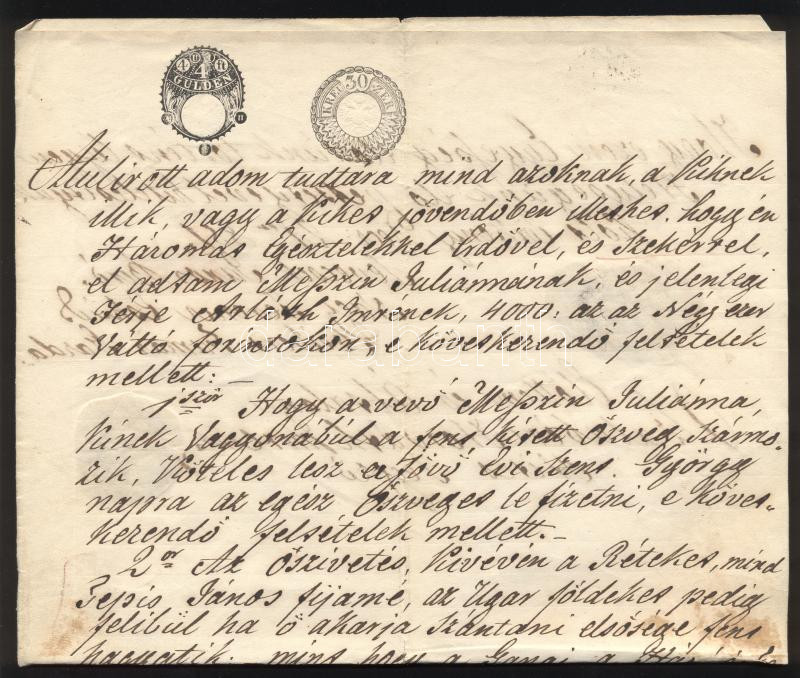 4 GULDEN
30 KREUZER
Alulirott adom tudtára mind azoknak, a Kiknek
illik vagy a Kikes jövendőben illeshes, hogy én
Háromas Gésztelekkel Erdővel, és Szekérrel,
el adtam Meßzin Juliánnának, és jelenlegi
Férje Imrenek, 4000: az az Négy ezer
Váltó forintokon, e köveskerendő felsételek
mellett: —
1ször Hogy a vevő Meßzin Juliánna,
Kinek Vagyonábúl a fens Kisett Öszveg Szármo-
zik, Köteles lesz a Jövő Évi Szens György
napra az egész Öszveges le fizetni, e köves-
kerendő felsételek mellett. —
2or Az Őszivetés, Kivévén a Réteket, mind
János fijamé, az Ugar földekes pedig
felibül ha ő akarja Szántani elsősége fens
hagyatik. mins hogy a
darabanth